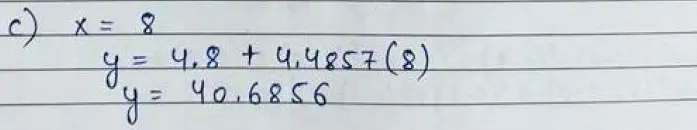 c) x = 8
y = 4.8 + 4.4857(8)
y = 40.6856